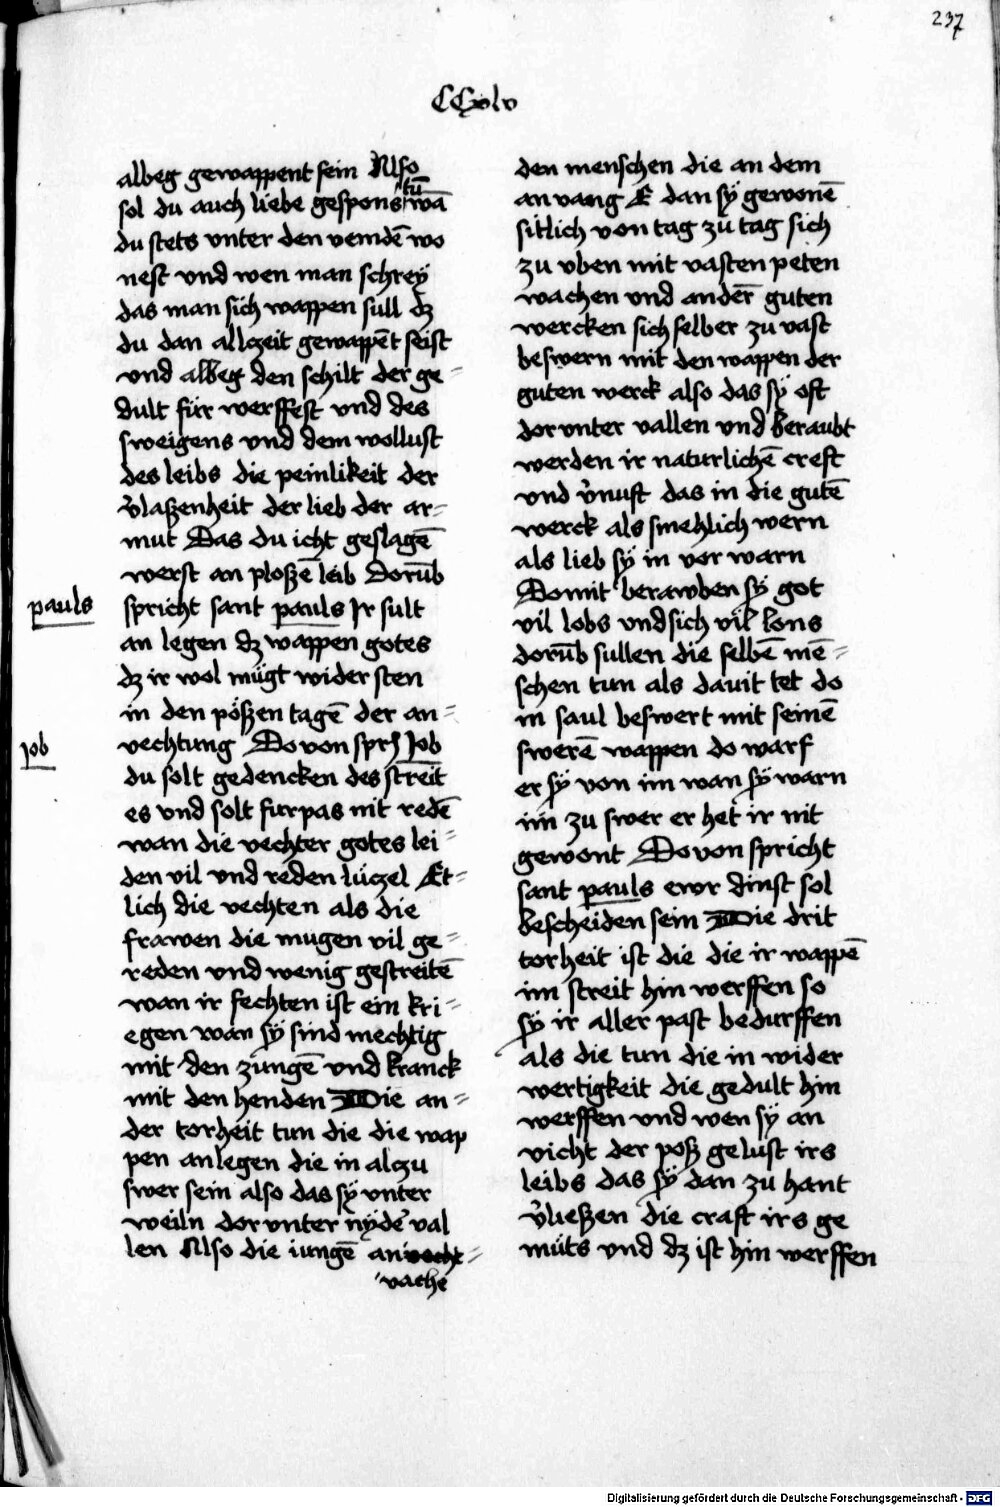 237
CCxlv
albeg gewappent sein Also
tu
sol du auch liebe gespons wā
du stets vnter den veindē wo
nest vnd wen man schreÿ
das man sich wappen sull dz
du dan allczeit gewappēt seist
vnd albeg den schilt der ge-
dult für werffest vnd des
sweigens vnd dem wollust
des leibs die peinlikeit der
v̓laßenheit der lieb der ar-
mut Das du icht geslagē
werst an ploßē leib Dorūb
pauls
spricht sant pauls Ir sult
an legen dz wappen gotes
dz ir wol mügt wider sten
in den pößen tagē der an-
Job
vechtung Do von sprh Job
du solt gedencken des streit
es vnd solt furpas nit redē
wan die vechter gotes lei-
den vil vnd reden lüczel Et-
lich die vechten als die
frawen die mugen vil ge-
reden vnd wenig gestreitē
wan ir fechten ist ein kri-
egen wan sÿ sind mechtig
mit den zungē vnd kranck
mit den henden Die an-
der torheit tun die die wap
pen anlegen die in alczu
swer sein also das sÿ vnter
weiln dor vnter nÿder val
len Also die iungē anvecht-
vache
den menschen die an dem
an vang E dan sÿ gewonē
sitlich von tag zu tag sich
zu vben mit vasten peten
wachen vnd ander guten
wercken sich selber zu vast
beswern mit den wappen der
guten werck also das sÿ oft
dor vnter vallen vnd beraubt
werden ir naturlichē creft
vnd v̓nuft das in die gutē
werck als smehlich wern
als lieb sÿ in vor warn
Domit berawben sÿ got
vil lobs vnd sich vil lons
dorūb sullen die selbē mē-
schen tun als dauit tet do
in saul beswert mit seinē
swerē wappen do warf
er sÿ von im wan sÿ warn
im zu swer er het ir nit
gewont Do von spricht
sant pauls ewr dinst sol
bescheiden sein Die drit
torheit ist die die ir wappē
im streit hin werffen so
sÿ ir aller past bedurffen
als die tun die in wider
wertigkeit die gedult hin
werffen vnd wen sÿ an
vicht der poß gelust irs
leibs das sÿ dan zu hant
v̓ließen die craft irs ge
müts vnd dz ist hin werffen
Digitalisierung gefördert durch die Deutsche Forschungsgemeinschaft - DFG